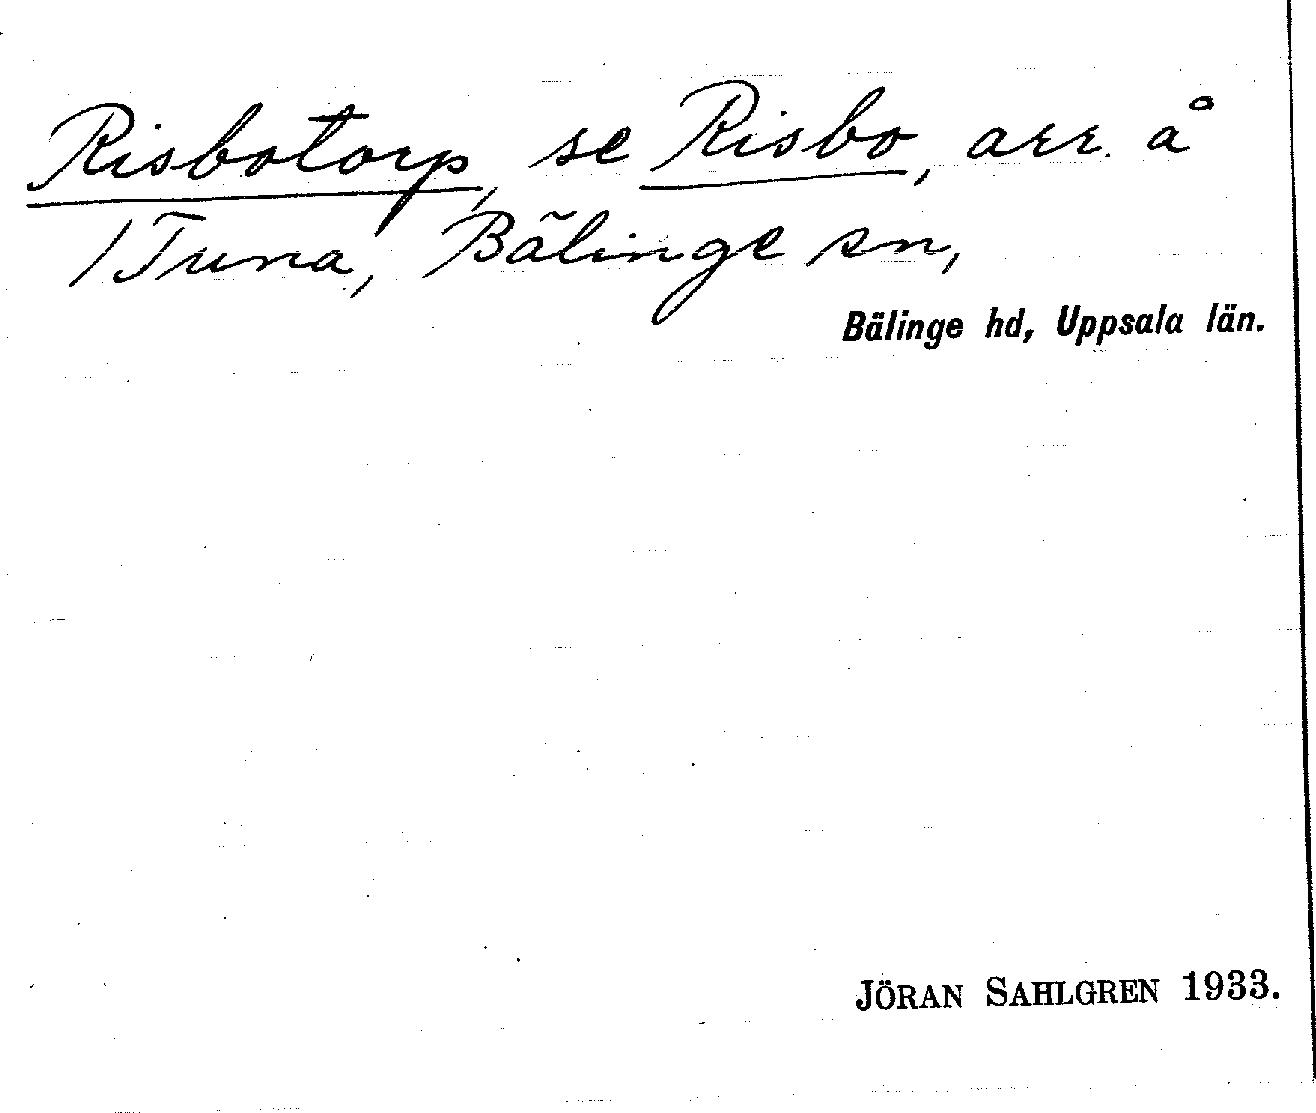 Risbotorp, se Risbo, arr. å
/Tuna, Bälinge sn,
Bälinge hd, Uppsala län.
JÖRAN SAHLGREN 1933.